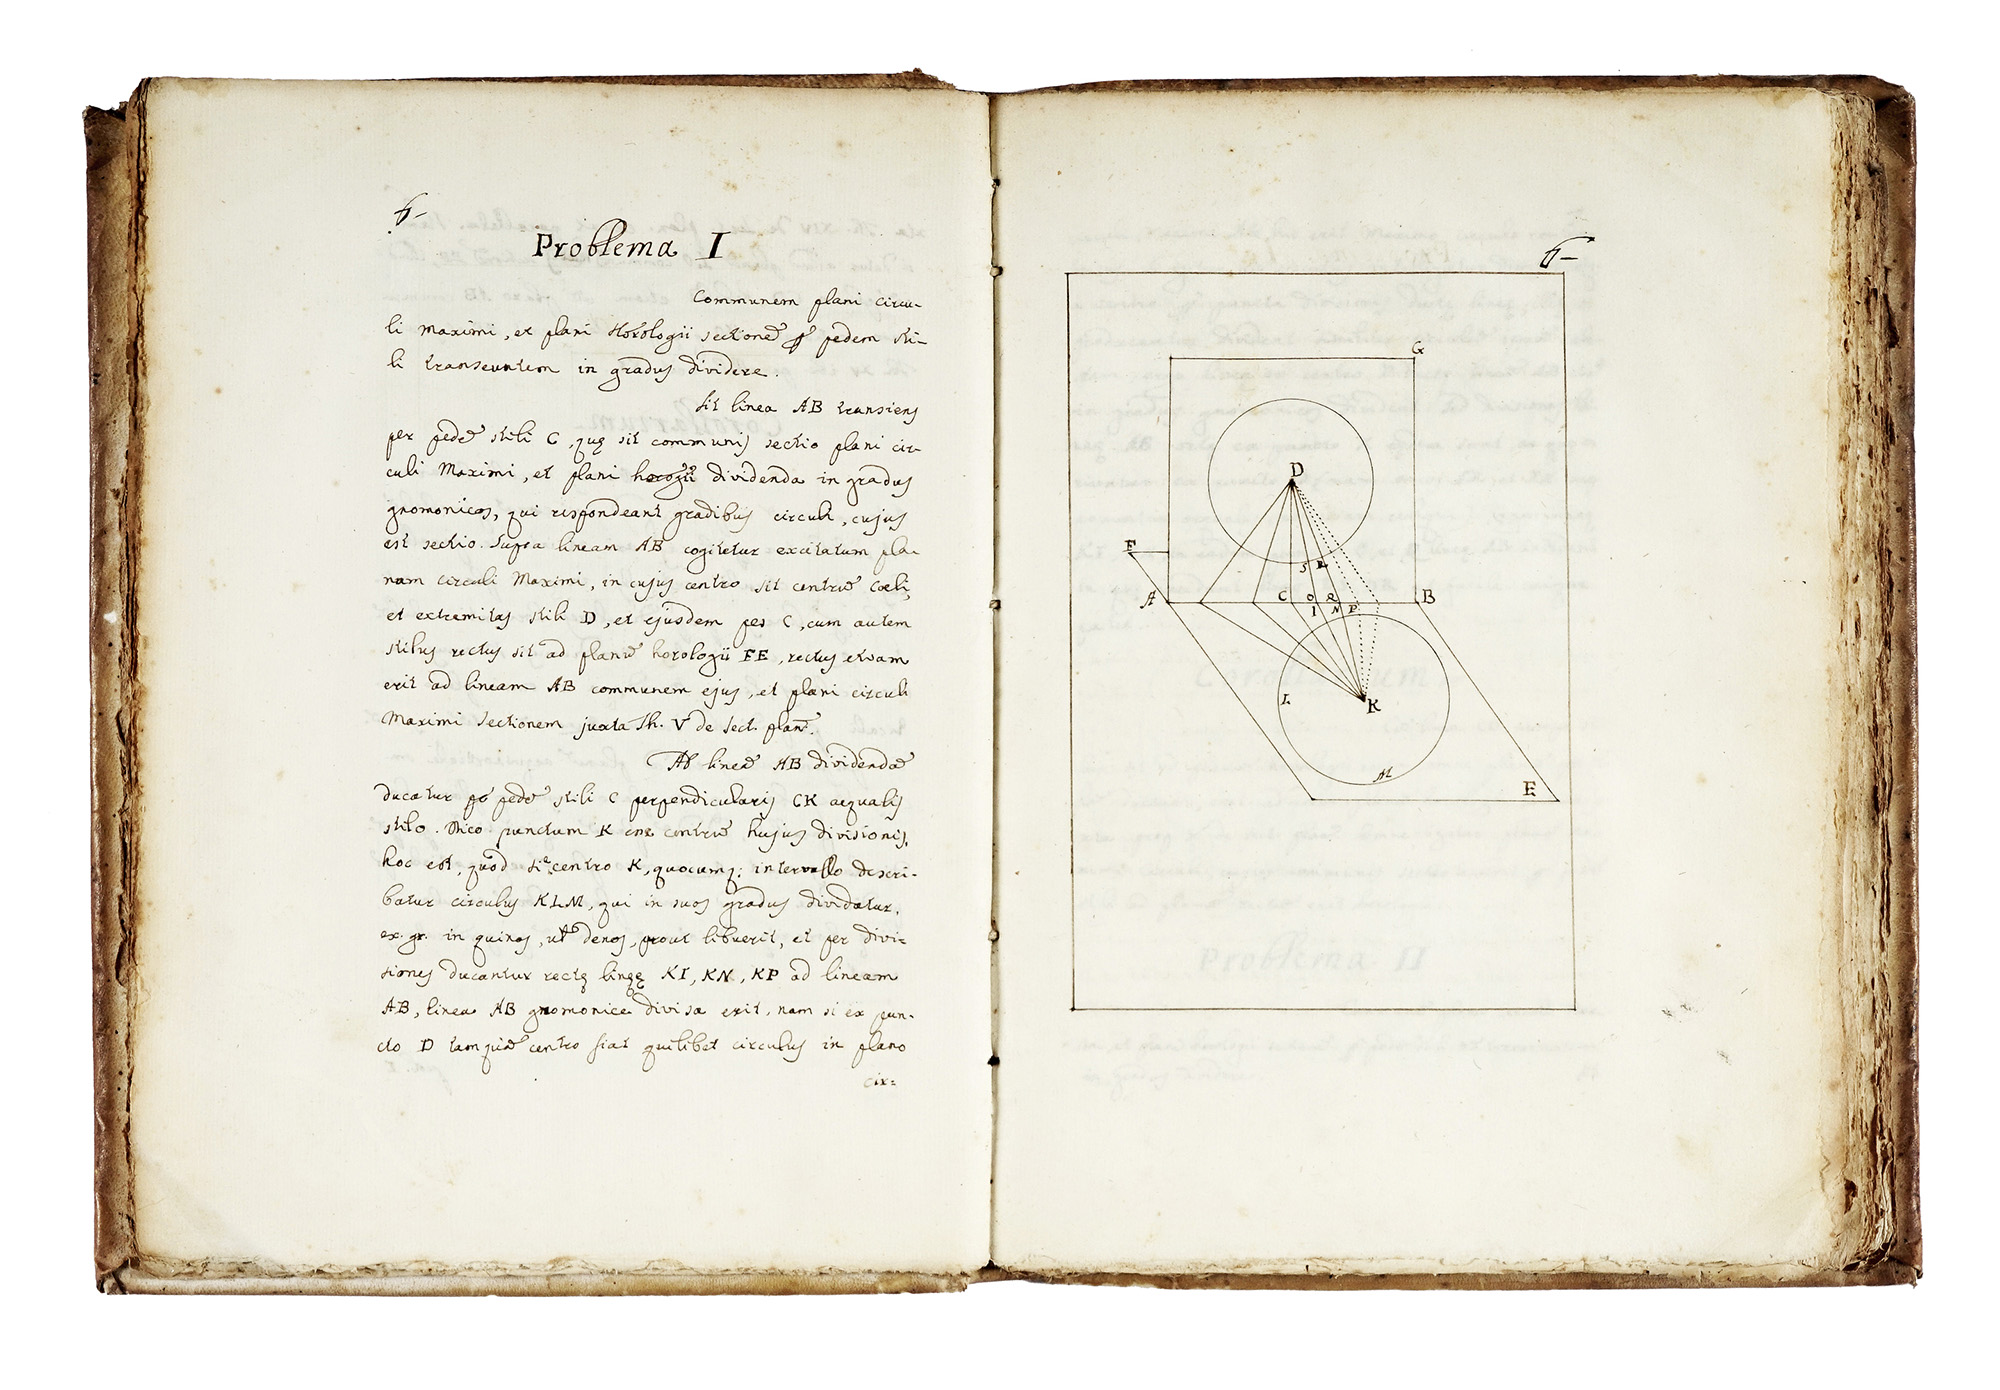 6
Problema I
Communem plani circu-
li maximi, et plani Horologii sectionē ꝑ pedem sti-
li transeuntem in gradus dividere.
Sit linea AB transiens
per pedē stili C, quę sit communis sectio plani cir-
culi Maximi, et plani dividenda in gradus
gnomonicos, qui respondeant gradibus circuli, cujus
est sectio. Supra lineam AB cogitetur excitatum pla-
num circuli Maximi, in cujus centro sit centrū Cœli,
et extremitas stili D, et ejusdem pes C, cum autem
stilus rectus sit ad planū horologii FE, rectus etiam
erit ad lineam AB communem ejus, et plani circuli
Maximi sectionem juxta Th. V de sect. plan.
Ab lineā AB dividendā
ducatur pedē stili C perpendicularis CK aequalis
stilo. Dico punctum K centrū hujus divisionis,
hoc est, quod si centro K, quocumq; intervallo descri-
batur circulus KLM, qui in suos gradus dividatur,
ex. gr. in quinos, denos, prout libuerit, et per divi-
siones ducantur rectę linęę KI, KN, KP ad lineam
AB, linea AB gnomonice divisa erit, nam si ex pun-
cto D tamquā centro fiat quilibet circulus in plano
cir=
6
G
D
F
S R
A C O Q B
I N P
L K
M
E